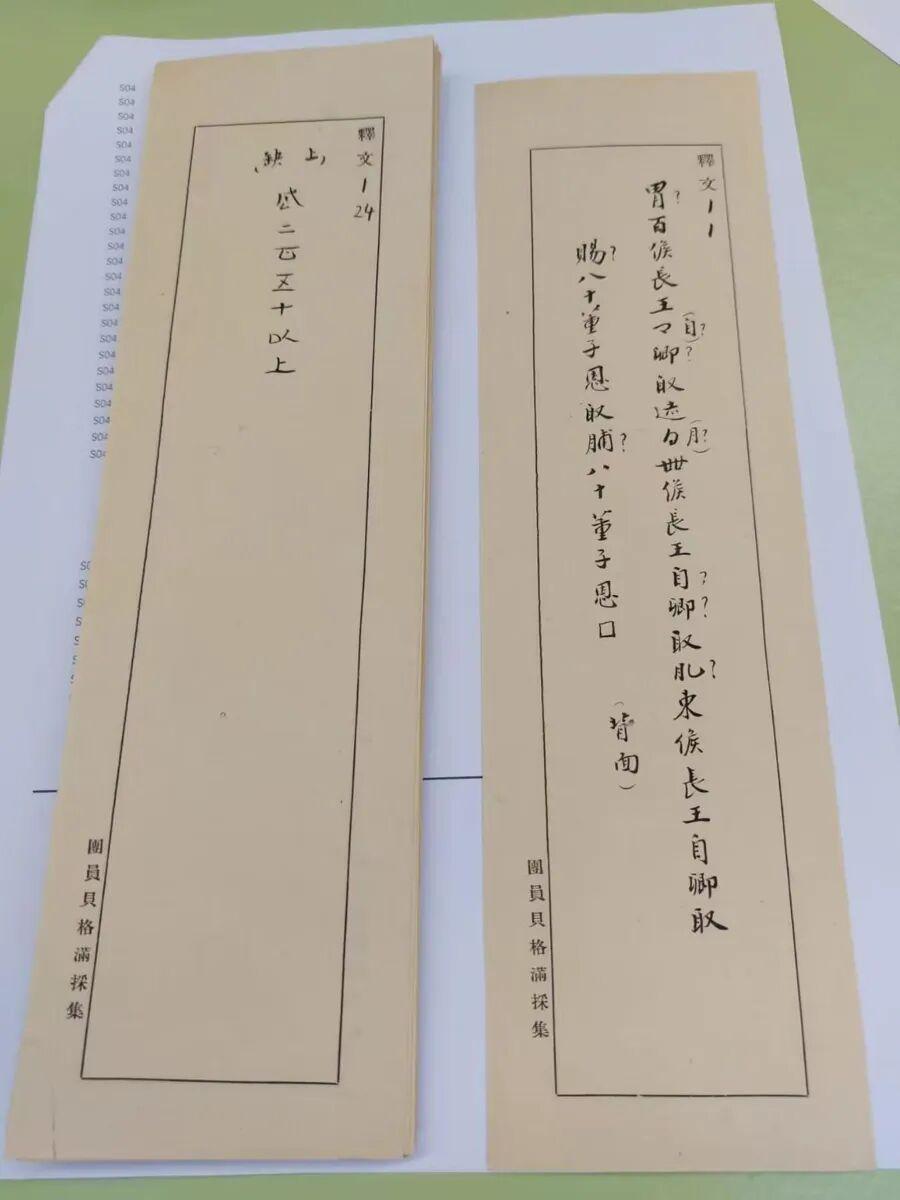 釋文 1 1
胃?百候長王マ(自?)卿?取白(月?)候長王自?卿?取肌?束候長王自卿取
賜?八十董子恩取脯?八十董子恩口 (背面)
團員貝格滿採集
釋文 1 24
(上缺)
二百五十以上
團員貝格滿採集
S04
S04
S04
S04
S04
S04
S04
S04
S04
S04
S04
S04
S04
S04
S04
S04
S04
S04
S04
S04
S04
S04
S04
S04
S04
S04